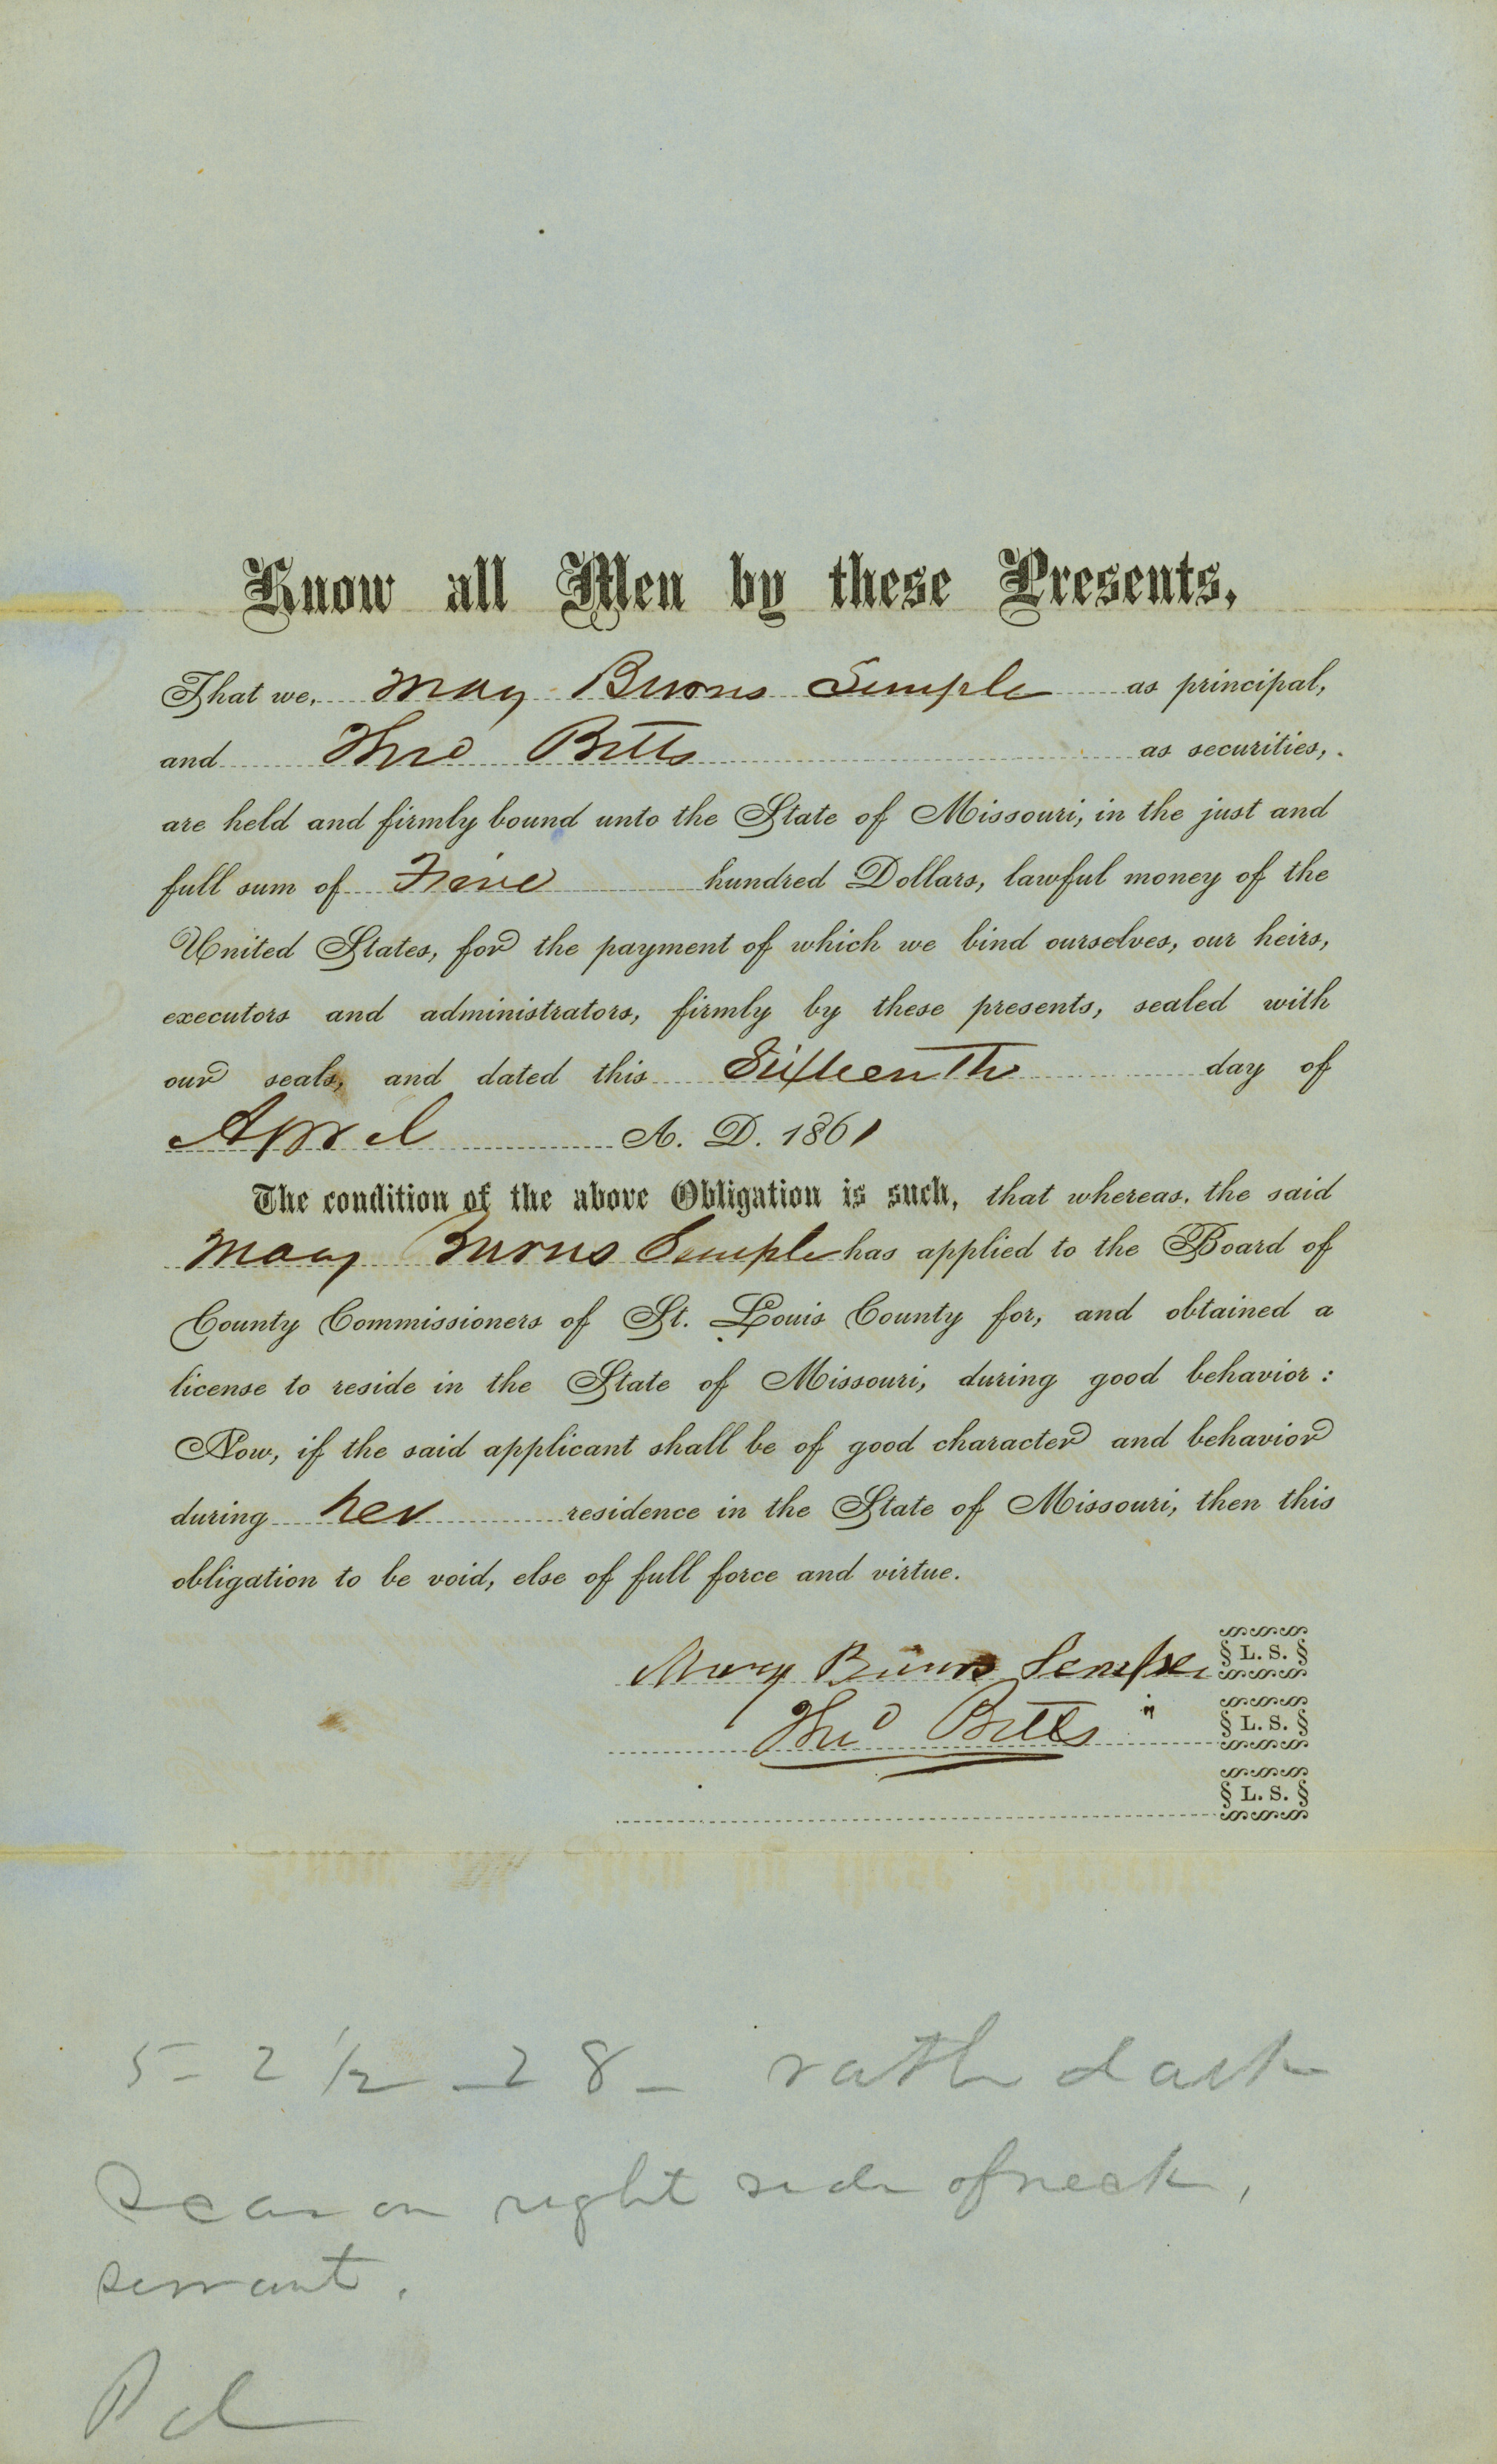 Know all Men by these Presents,
That we, Mary Burns Semple as principal,
and Theo Betts as securities,
are held and firmly bound unto the State of Missouri, in the just and
full sum of Five hundred Dollars, lawful money of the
United States, for the payment of which we bind ourselves, our heirs,
executors and administrators, firmly by these presents, sealed with
our seals, and dated this Sixteenth day of
April A. D. 1861
The condition of the above Obligation is such, that whereas, the said
Mary Burns Semple has applied to the Board of
County Commissioners of St. Louis County for, and obtained a
license to reside in the State of Missouri, during good behavior:
Now, if the said applicant shall be of good character and behavior
during her residence in the State of Missouri, then this
obligation to be void, else of full force and virtue.
Mary Burns Semple L. S.
Theo Betts L. S.
L. S.
5-2 1/2 - 28 - rath dark
Scar on right side of neck,
servant.
Pd